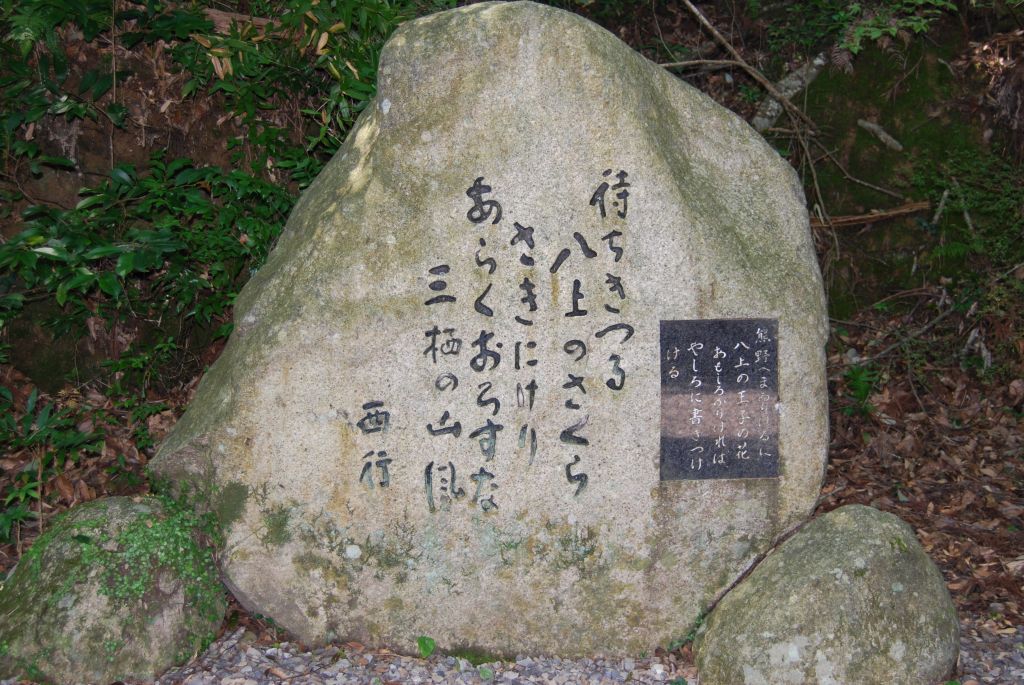 熊野へまゐりけるに
八上の王子の花
おもしろかりければ
やしろに書きつけ
ける
待ちきつる
八上のさくら
さきにけり
あらくおろすな
三栖の山風
西行